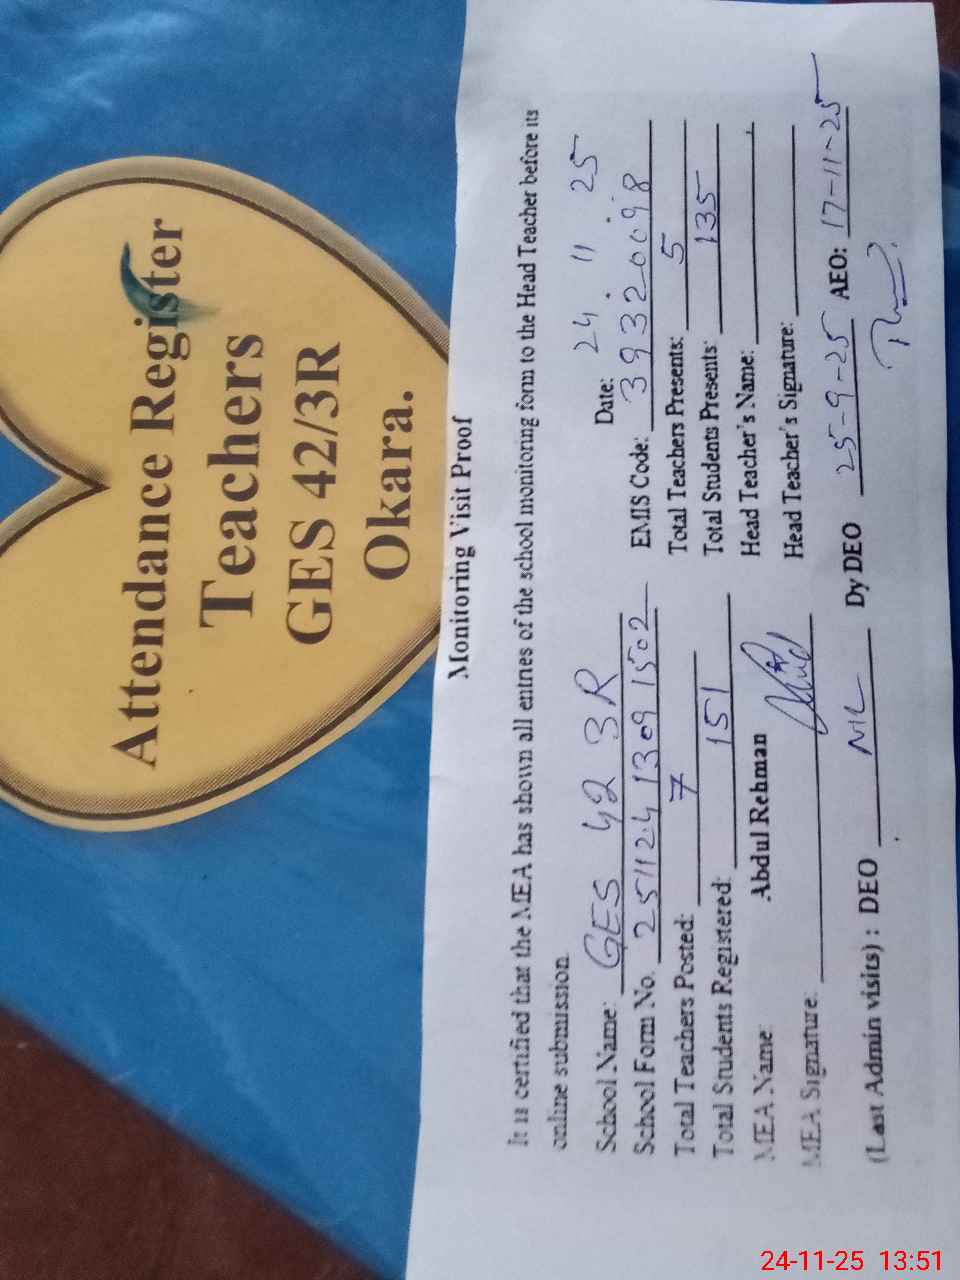 Attendance Register
Teachers
GES 42/3R
Okara.
Monitoring Visit Proof
It is certified that the MEA has shown all entries of the school monitoring form to the Head Teacher before its
online submission
Date: 24 11 25
School Name: GES 42 3R EMIS Code: 39320098
School Form No. 251124 1309 1502 Total Teachers Presents: 5
Total Teachers Posted: 7 Total Students Presents: 135
Total Students Registered: 151 Head Teacher's Name:
MEA Name: Abdul Rehman Head Teacher's Signature:
MEA Signature:
(Last Admin visits) : DEO NIL Dy DEO 25-9-25 AEO: 17-11-25
24-11-25 13:51